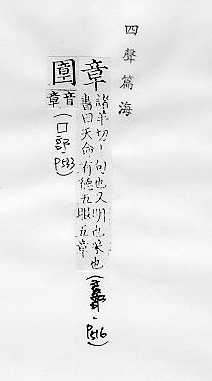 四聲篇海
章
諸羊切丨句也又明也采也
書曰天命有德五服五章
P516)
音章
(口部.P543)